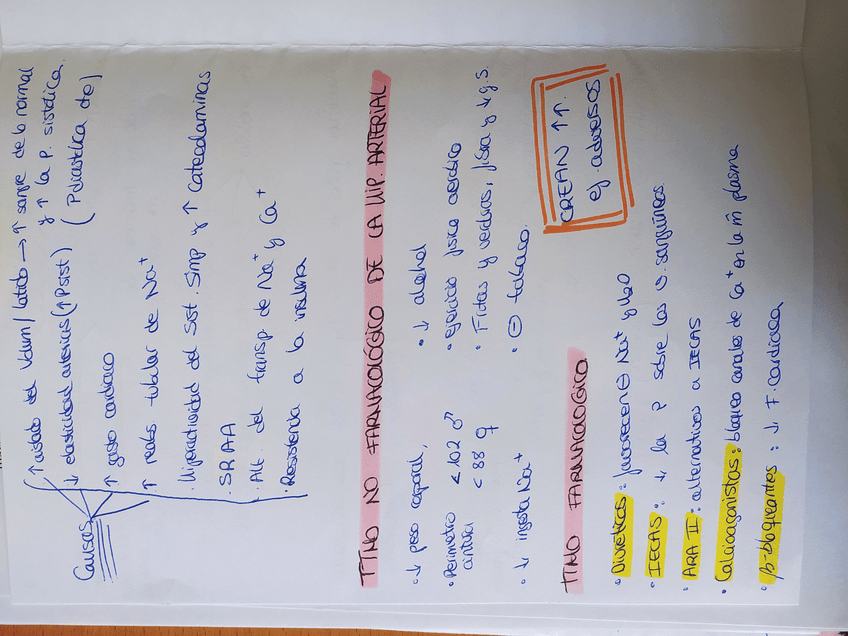 Causas
↑ aislado del volum/latido → ↑ sangre de lo normal
y ↑ la P. sistólica.
↓ elasticidad arterias (↑ Psist) (Pdiastólica de)
↑ gasto cardiaco
↑ reabs tubular de Na⁺
· Hiperactividad del Sist. Simp y ↑ catecolaminas
· SRAA
· Alt. del transp de Na⁺ y Ca⁺
· Resistencia a la insulina
TTMO NO FARMACOLÓGICO DE LA HIP. ARTERIAL
• ↓ peso corporal,
• Perímetro cintura < 102 ♂
< 88 ♀
• ↓ ingesta Na⁺
• ↓ alcohol
• ejercicio físico aeróbico
• Frutas y verduras, fibra y ↓ g. s.
• ⊖ tabaco.
TTMO FARMACOLÓGICO
CREAN ↑↑.
ef. adversos
• Diuréticos: favorecen ⊖ Na⁺ y H₂O
• IECAS: ↓ la P sobre los v. sanguíneos
• ARA II: alternativos a IECAS
• Calcioagonistas: bloqueo canales de Ca⁺ en la m̄ plasma
• β-bloqueantes: ↓ F. cardiaca